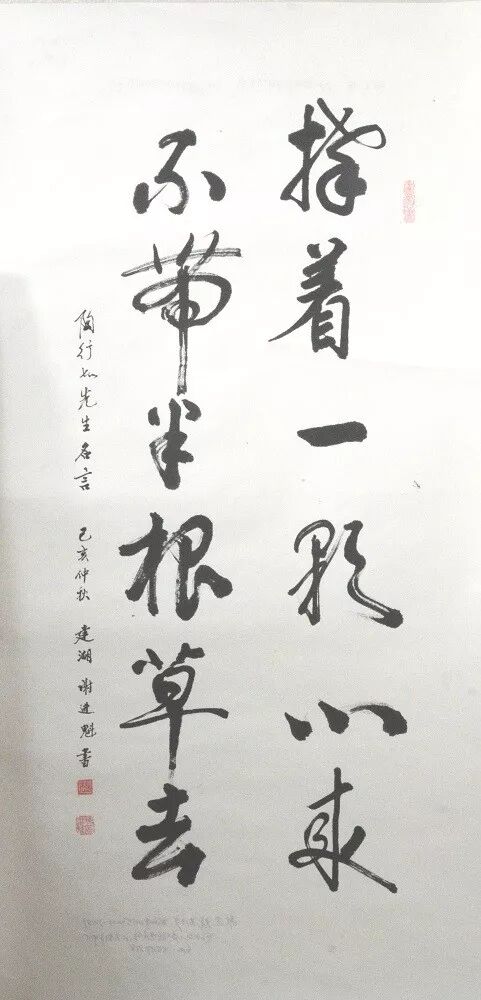 捧着一颗心来
不带半根草去
陶行知先生名言 己亥仲秋 建湖 谢进魁书